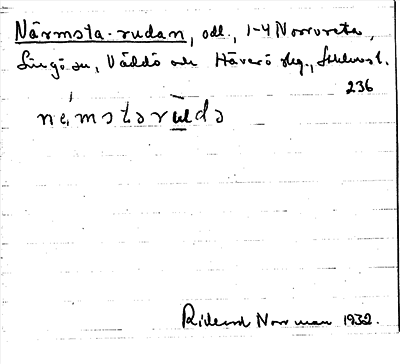 Närmsta-rudan, odl., 1-4 Norrveta,
Singö sn, Väddö och Häverö slg., Sthlms l.
236
némstarudə
Rickard Norrman 1932.